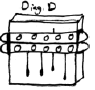 Diag. D